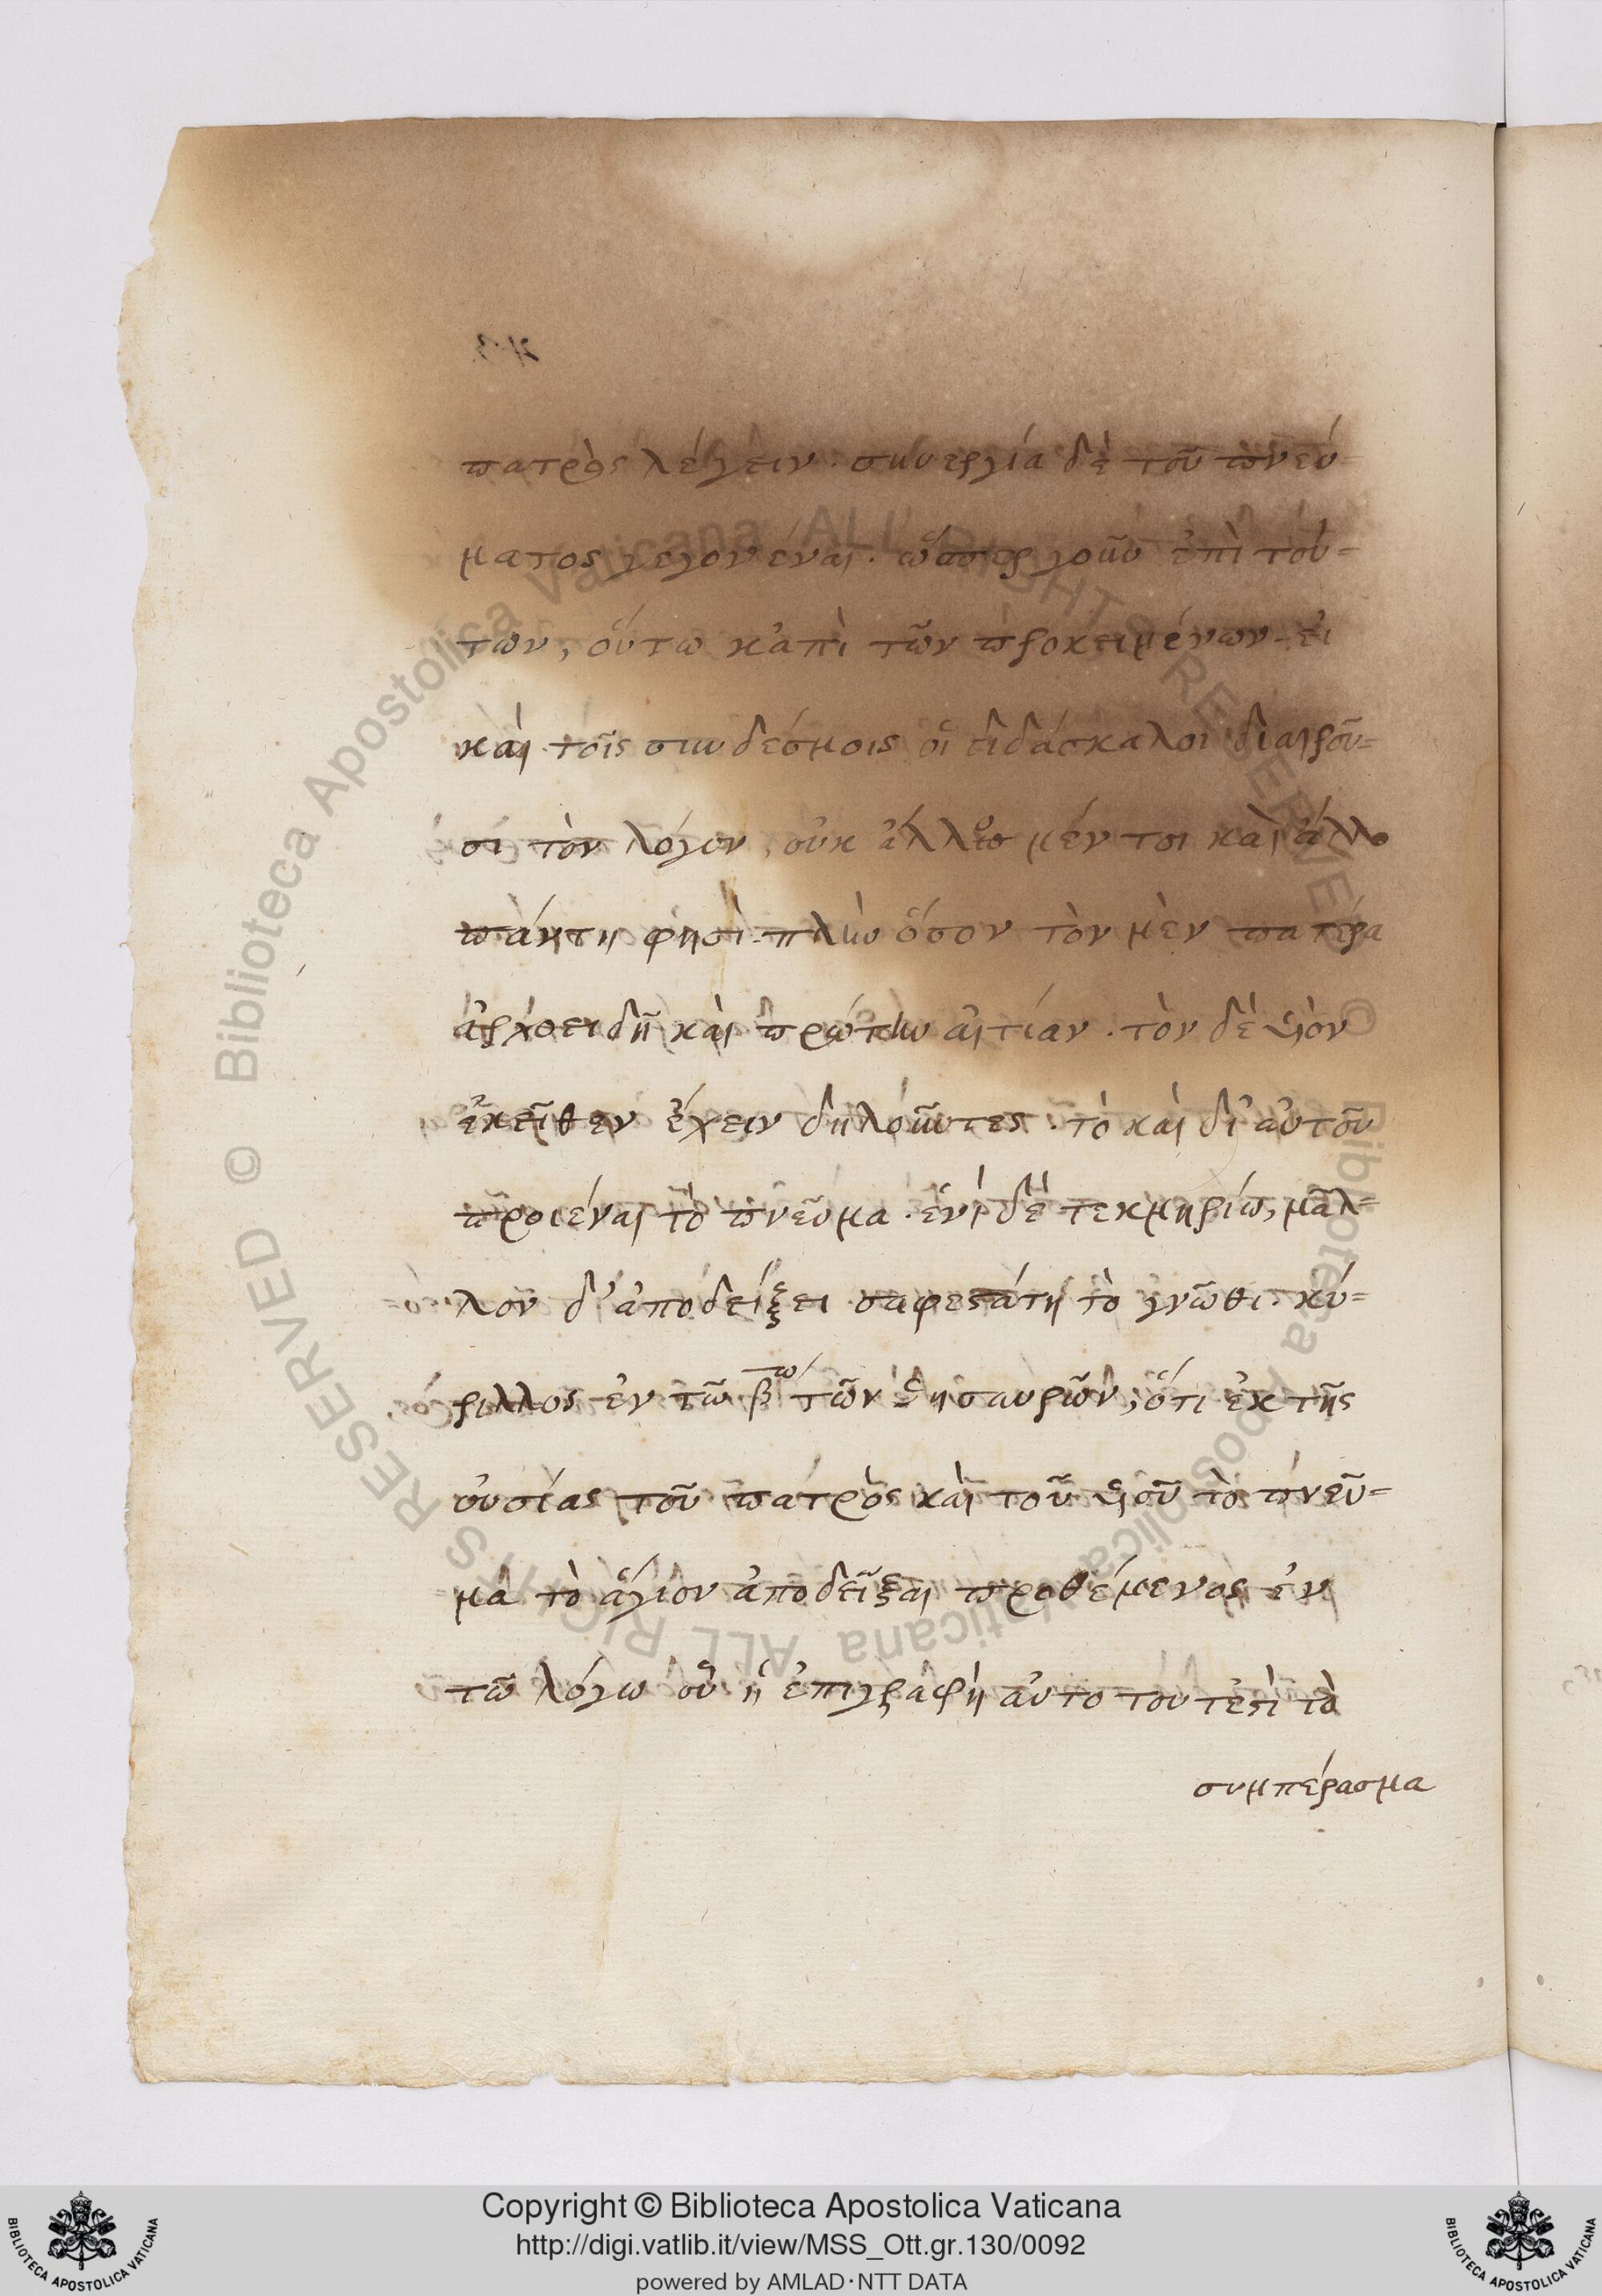 πατρὸς λέγειν. συνεργία δὲ τοῦ πνεύ-
ματος γεγονέναι. ὥσπερ γοῦν ἐπὶ τού-
των, οὕτω κἀπὶ τῶν προκειμένων. εἰ
καὶ τοῖς συνδέσμοις οἱ διδάσκαλοι διαιροῦ-
σι τὸν λόγον, οὐκ ἄλλο μέν τοι καὶ ἄλλο
πάντη φησὶ. πλὴν ὅσον τὸν μὲν πατέρα
ἀρχοειδῆ καὶ πρώτην αἰτίαν. τὸν δὲ υἱὸν
ἐκεῖθεν ἔχειν δηλοῦντες. τὸ καὶ δι' αὐτοῦ
προϊέναι τὸ πνεῦμα. ἑνὶ δὲ τεκμηρίω, μᾶλ-
λον δ' ἀποδείξει σαφεστάτη τὸ γνῶθι. κύ-
ριλλος ἐν τῶ β τω τῶν θησαυρῶν, ὅτι ἐκ τῆς
οὐσίας τοῦ πατρὸς καὶ τοῦ υἱοῦ τὸ πνεῦ-
μα τὸ ἅγιον ἀποδεῖξαι προθέμενος ἐν
τῶ λόγω οὗ ἡ ἐπιγραφὴ αὐτο τουτέστι τὸ
συμπέρασμα
Copyright © Biblioteca Apostolica Vaticana
http://digi.vatlib.it/view/MSS_Ott.gr.130/0092
powered by AMLAD·NTT DATA
BIBLIOTECA APOSTOLICA VATICANA
BIBLIOTECA APOSTOLICA VATICANA
© Biblioteca Apostolica Vaticana ALL RIGHTS RESERVED
© Biblioteca Apostolica Vaticana ALL RIGHTS RESERVED